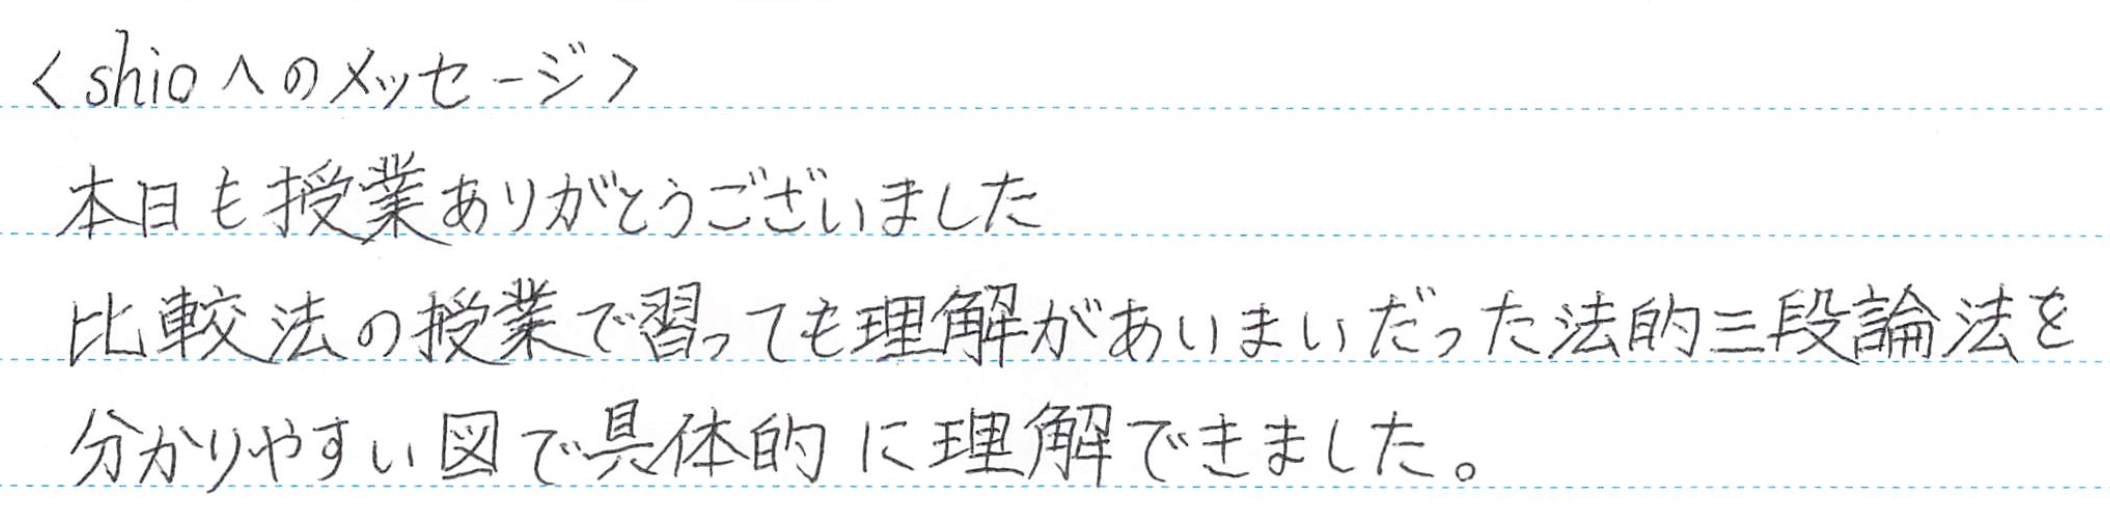 <shioへのメッセージ>
本日も授業ありがとうございました
比較法の授業で習っても理解があいまいだった法的三段論法を
分かりやすい図で具体的に理解できました。